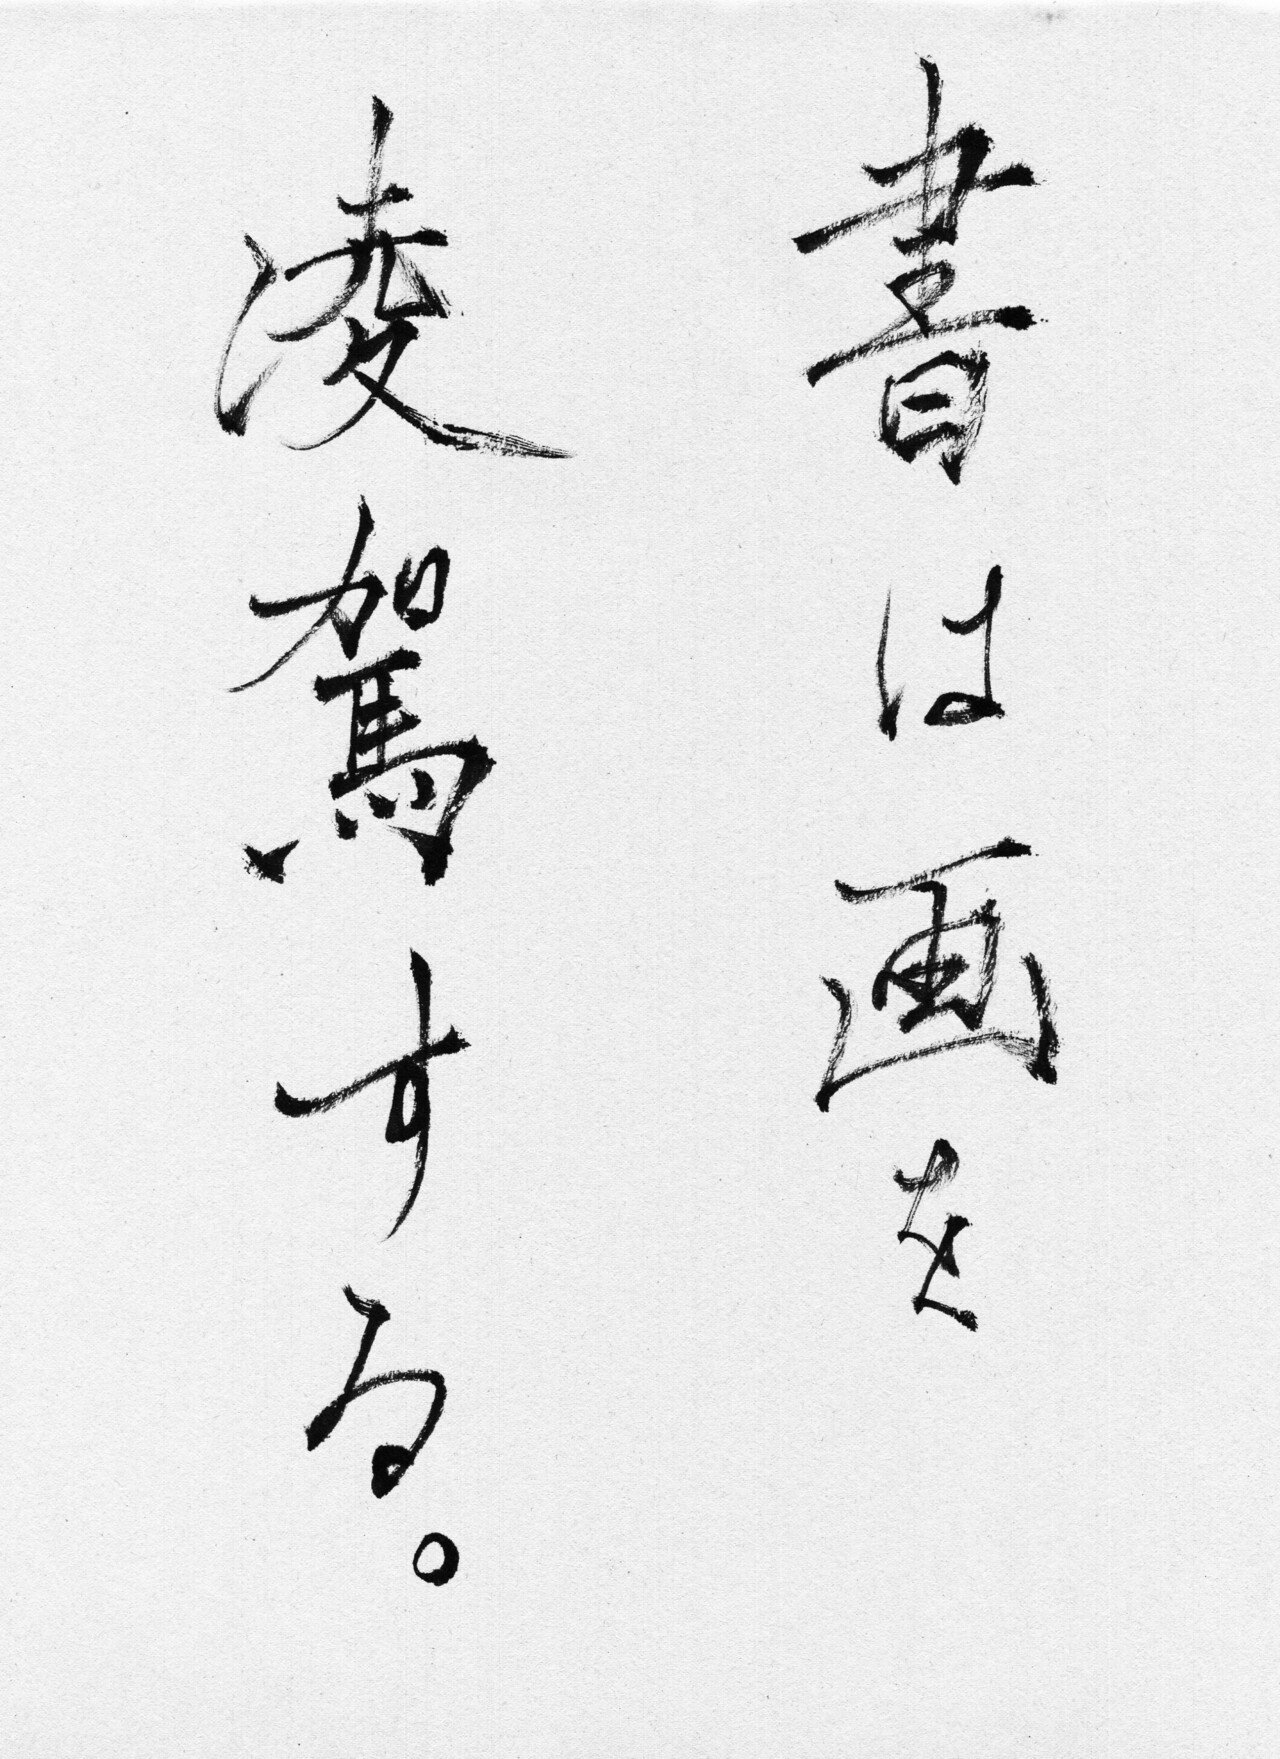 書は画を
凌駕する。